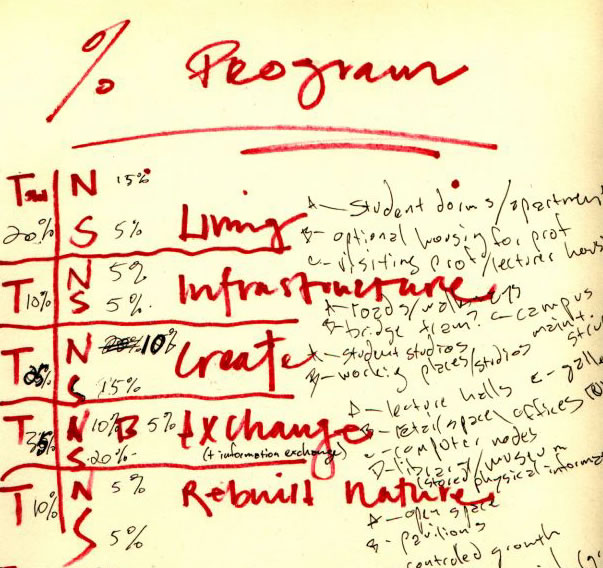 % Program
T N 15%
20% S 5% Living
A - student dorms/apartment
B - optional housing for prof
C - visiting prof/lecturer hous
T 10% N 5%
S 5% Infrastructure
A - roads/
B - bridge campus
maint.
T N 10% Create
S 15%
A - student studios
B - working places/studios
T N 10% B 5% Exchange
S 20% (+ information exchange)
A - lecture halls
B - retail space/offices
C - computer nodes
D - library/museum
(stored physical informat
T 10% N 5% Rebuild Nature
S 5%
A - open space
B - pavilions
controled growth